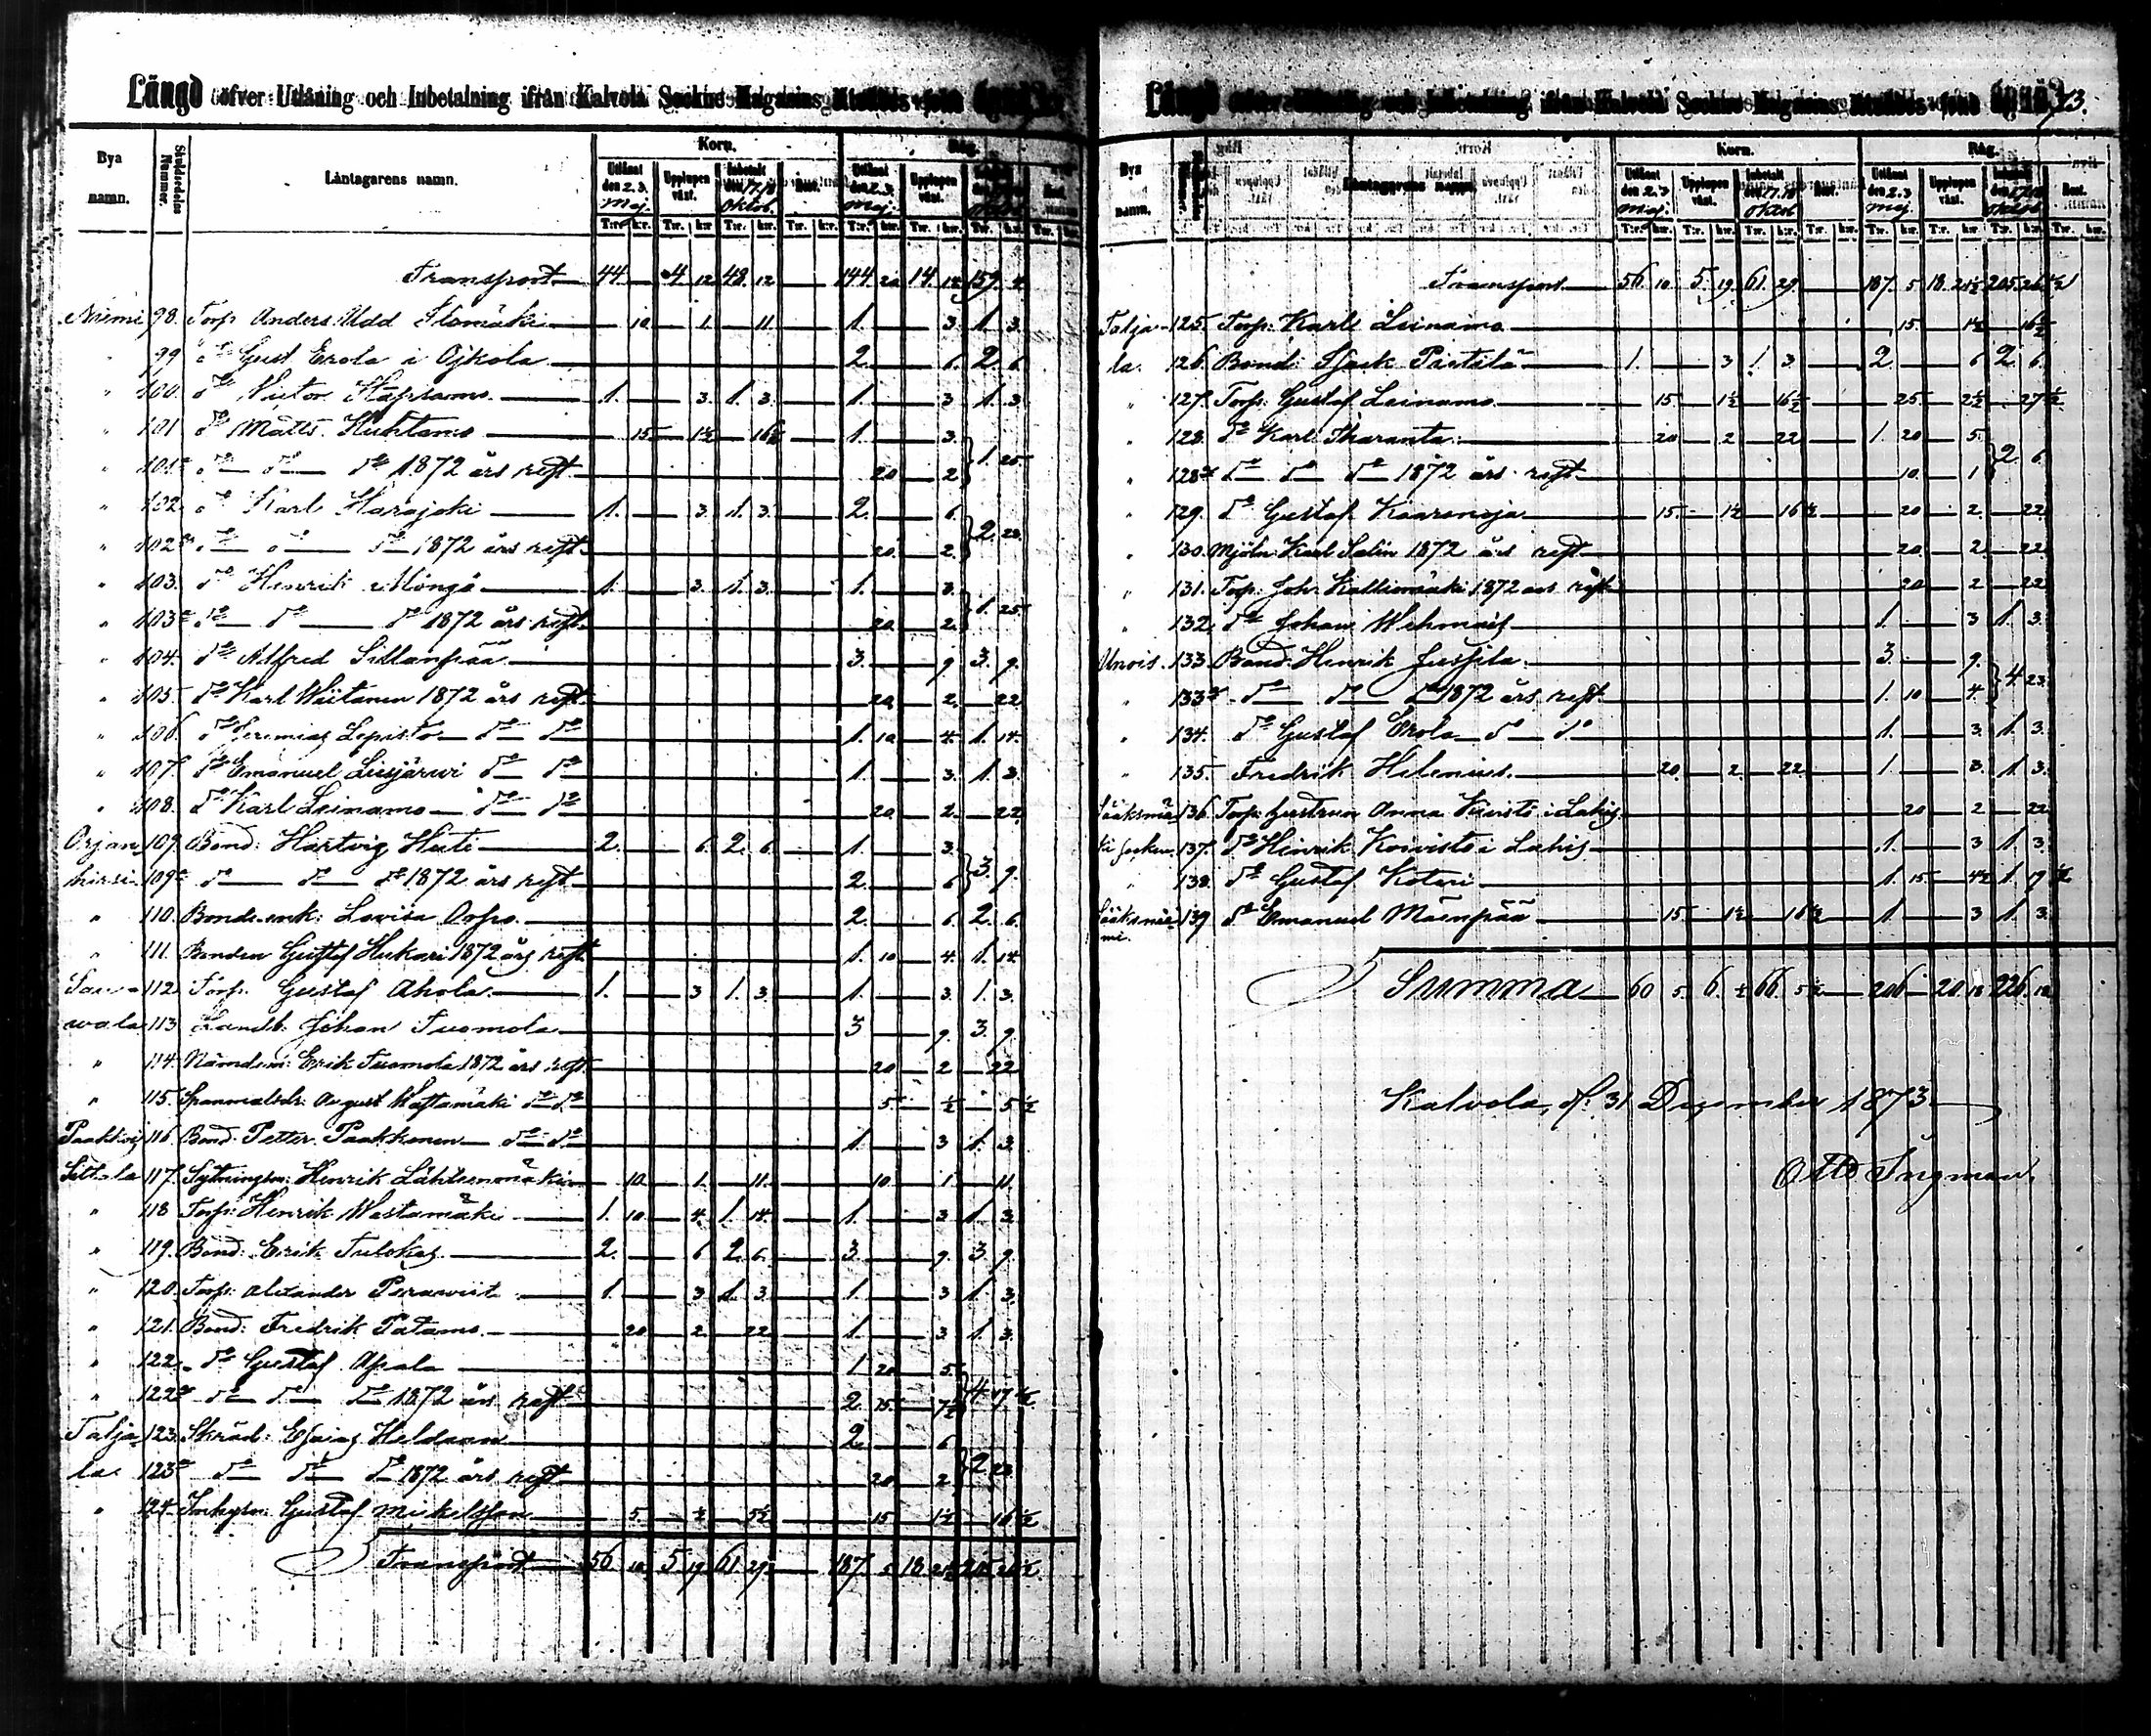 Längd öfver Utlåning och Inbetalning ifrån Kalvola Sockne Magasins
Bya namn. Skuldsedelns Nummer. Låntagarens namn. Korn. Råg.
Utlånt den 2.3. Maj. Upplupen växt. Inbetalt den 17.18 Oktob. Rest. Utlånt den 2.3. Maj. Upplupen växt. Oktob. Rest
T:r. k:r. T:r. k:r. T:r. k:r. T:r. k:r. T:r. k:r. T:r. k:r. T:r. k:r. T:r. k:r.
Transport 44. 4. 12 48. 12 144. 20 14. 14 159. 4
Niemi 98. Torp. Anders Udd 10. 1. 11. 1. 3. 1. 3.
" 99 do Gust Erola i Ojkola 2. 6. 2. 6.
" 100. do 1. 3. 1. 3. 1. 3 1. 3
" 101 do Matts Huhtamo 15. 1½ 16½ 1. 3.
" 101a do do do 1872 års rest 20 2 } 1. 25
" 102. do Karl Harajoki 1. 3. 1. 3. 2. 6.
" 102a do do do 1872 års rest. 20. 2. } 2. 28.
" 103. do Henrik Mongö 1. 3. 1. 3. 1. 3.
" 103a do do do 1872 års rest. 20. 2. } 1. 25
" 104. do Alfred Sillanpää 3. 9 3. 9.
" 105. do Karl Wiitanen 1872 års rest. 20. 2. 22
" 106. do Jeremias Lepistö do do 1. 10 4. 1. 14.
" 107. do Emanuel Liesjärwi do do 1. 3. 1. 3.
" 108. do Karl Leinamo do do 20. 2. 22.
Orjan 109. Bond: Hartvig Huti 2. 6. 2. 6. 1. 3.
hirsi 109a do do do 1872 års rest 2. 6 } 3. 9.
" 110. Bonde enk: Lovisa Orpo. 2. 6. 2. 6.
" 111. Bonden Gustaf Hukari 1872 års rest. 1. 10 4. 1. 14.
112. Torp. Gustaf Ahola 1. 3 1. 3. 1. 3. 1. 3.
wala 113 Landb. Johan Tuomola 3 9. 3. 9.
" 114. Nämdem: Erik Tuomola 1872 års rest. 20 2 22
" 115. August do do 5. ½ 5½
116. Bond. Petter Paakkonen do do 1. 3 1. 3
Sittala 117. Sytningsm: Henrik 10. 1. 11. 10. 1 11.
" 118 Torp: Henrik Wastamäki 1. 10 4. 1. 14. 1. 3 1. 3
" 119. Bond. Erik Tulokas 2. 6 2. 6. 3. 9. 3. 9.
" 120. Torp: Alexander 1. 3 1. 3. 1. 3 1. 3.
" 121. Bond: Fredrik Patamo 20 2. 22 1. 3 1. 3.
" 122. do Gustaf 1 20 5.
" 122a do do do 1872 års rest 2. 15. 7½ } 4 17½
Talja 123. Skräd: Esaias Heldman 2. 6
la. 123a do do do 1872 års rest 20 2 } 2 28
" 124. Inhysn: Gustaf Mickelsson 5. ½ 5½ 15 1½ 16½
Transport 56. 10 5 19 61 29. 187. 5 18. 21½ 205. 26½
Längd ifrån Kalvola Sockne Magasins 1873.
Bya namn. Låntagarens namn. Korn. Råg.
Utlånt den 2.3 Maj. Upplupen växt. Inbetalt den 17.18 Oktob Rest. Utlånt den 2.3 Maj. Upplupen växt. Oktob Rest.
T:r. k:r. T:r. k:r. T:r. k:r. T:r. k:r. T:r. k:r. T:r. k:r. T:r. k:r. T:r. k:r.
Transport 56. 10 5. 19. 61. 29. 187. 5 18. 21½ 205. 26½
Talja 125. Torp: Karl Leinamo 15. 1½ 16½
la. 126. Bond: Isack Pästilä 1. 3 1. 3. 2. 6 2. 6.
" 127. Torp: Gustaf Leinamo 15. 1½ 16½ 25. 2½ 27½
" 128. do Karl Iharanta 20 2 22 1. 20 5.
" 128a do do do 1872 års rest 10. 1 } 2. 6
" 129. do Gustaf Kaarenoja 15. 1½ 16½ 20 2. 22.
" 130. Mjöln: Karl Salin 1872 års rest 20. 2. 22.
" 131. Torp: Joh. Kalliomäki 1872 års rest 20 2 22
" 132. do Johan 1. 3 1. 3.
133. Bond: Henrik Jussila 3. 9.
" 133a do do do 1872 års rest. 1. 10 4. } 4 23.
" 134. do Gustaf Erola do do 1. 3. 1. 3.
" 135. Fredrik Helenius. 20. 2. 22 1. 3. 1. 3.
Sääksmä 136. Torp: hustrun Anna Kuisto i Lahis 20 2 22
137. do Henrik Koivisto i Lahis 1. 3 1. 3.
" 138. do Gustaf Kotari 1. 15. 4½ 1. 19½
Sääksmä mi. 139 do Emanuel Mäenpää 15. 1½ 16½ 1. 3 1. 3.
Summa 60 5. 6. ½ 66. 5½ 206 20. 18 226. 18
Kalvola, d. 31 December 1873
Otto Ingman